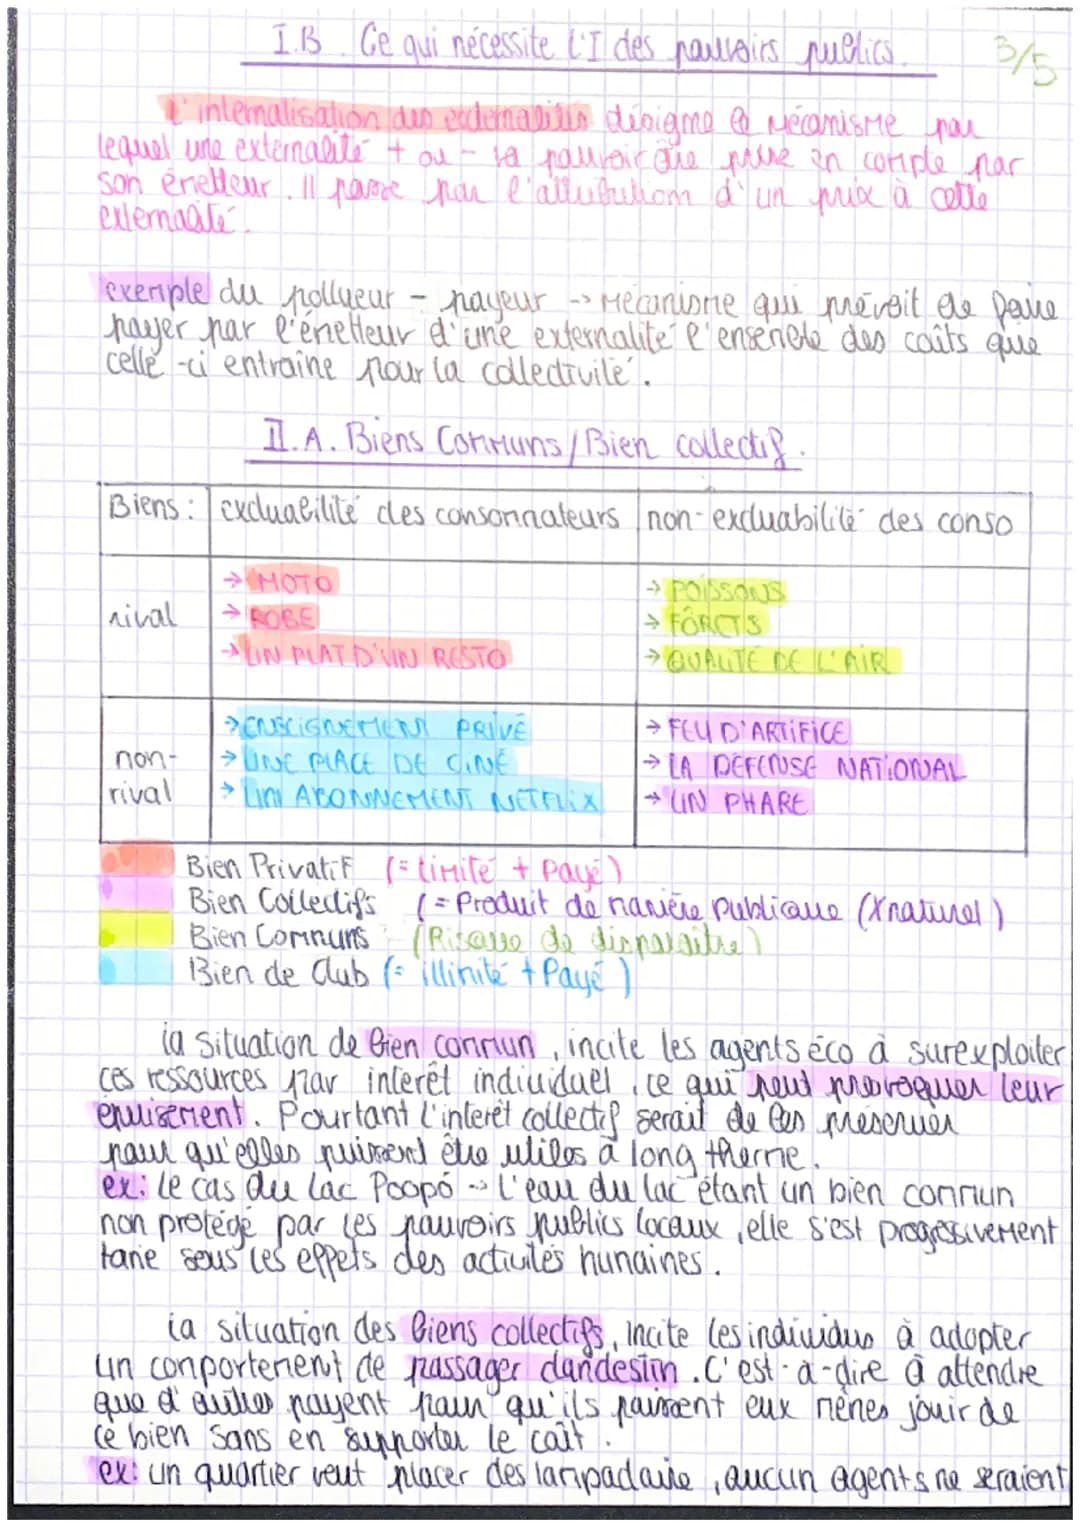 I.B. Ce qui nécessite l'I des pouvoirs publics.
3/5
L'internalisation des externalités désigne le mécanisme par
lequel une externalité + ou - va pouvoir être prise en compte par
son émetteur. Il passe par l'attribution d'un prix à cette
externalité.
exemple du pollueur - payeur -> Mécanisme qui prévoit de faire
payer par l'émetteur d'une externalité l'ensemble des coûts que
celle-ci entraine pour la collectivité.
II.A. Biens Communs / Bien collectif.
Biens : excluabilité des consommateurs non-excluabilité des conso
rival
→ MOTO
→ ROBE
→ UN PLAT D'UN RESTO
→ POISSONS
→ FÔRETS
→ QUALITÉ DE L'AIR
non-
rival
→ ENSEIGNEMENT PRIVÉ
→ UNE PLACE DE CINÉ
→ UN ABONNEMENT NETFLIX
→ FEU D'ARTIFICE
→ LA DÉFENSE NATIONAL
→ UN PHARE
Bien Privatif (= limité + Payé)
Bien Collectifs (= Produit de manière publique (X naturel)
Bien Communs (Risque de disparaitre)
Bien de Club (= illimité + Payé)
la situation de bien commun, incite les agents éco à surexploiter
ces ressources par interêt individuel, ce qui peut provoquer leur
épuisement. Pourtant l'interêt collectif serait de les préserver
pour qu'elles puissent être utiles à long therme.
ex: le cas du lac Poopó -> l'eau du lac étant un bien commun
non protégé par les pouvoirs publics locaux, elle s'est progressivement
tarie sous les effets des activités humaines.
la situation des biens collectifs, incite les individus à adopter
un comportement de passager clandestin. C'est-à-dire à attendre
que d'autres payent pour qu'ils puissent eux mêmes jouir de
ce bien sans en supporter le coût.
ex: un quartier veut placer des lampadaire, aucun agents ne seraient